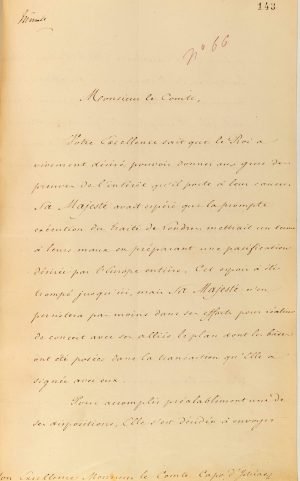 143
Minute
N° 66
Monsieur le Comte,
Votre Excellence sait que le Roi a
vivement désiré pouvoir donner aux grecs des
preuves de l'intérêt qu'il porte à leur cause.
Sa Majesté avait espéré que la prompte
exécution du traité de Londres mettrait un terme
à leurs maux en préparant une pacification
désirée par l'Europe entière. Cet espoir a été
trompé jusqu'ici, mais Sa Majesté n'en
persistera pas moins dans ses efforts pour réaliser
de concert avec ses alliés le plan dont les bases
ont été posées dans la transaction qu'Elle a
signée avec eux.
Pour accomplir préalablement une de
ses dispositions, Elle s'est décidée à envoyer
Son Excellence Monsieur le Comte Capo d'Istrias